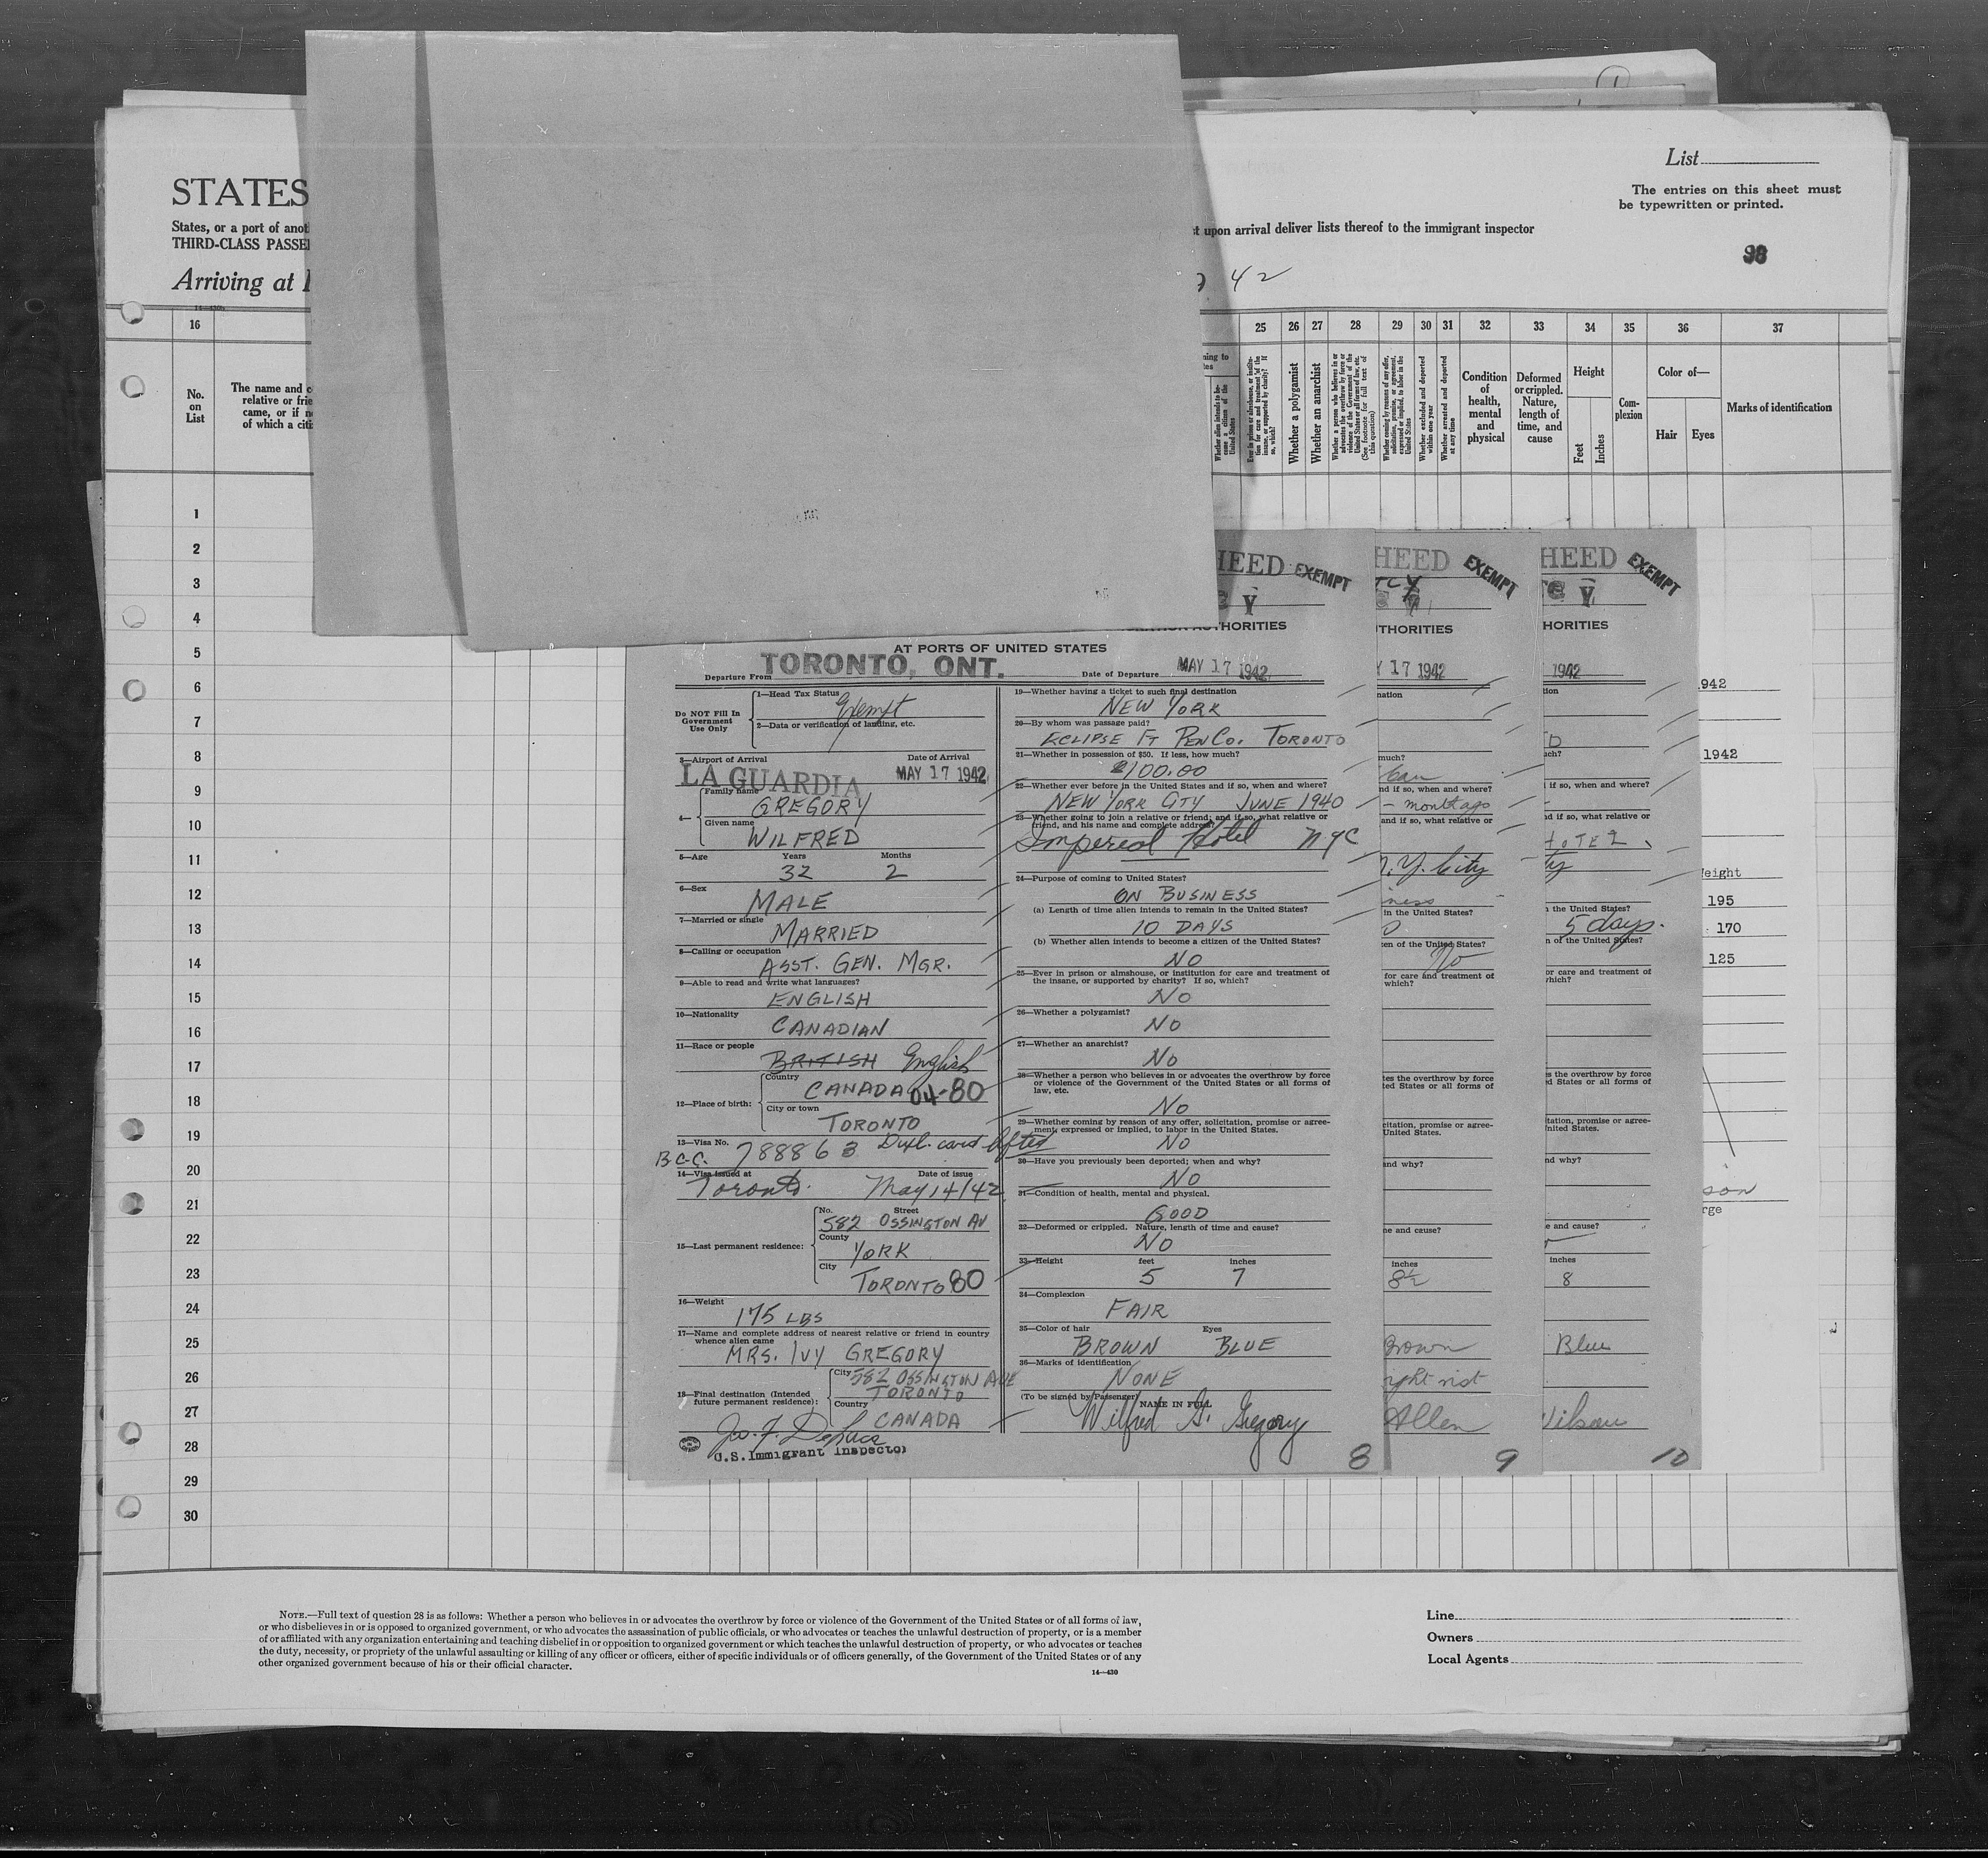 List
The entries on this sheet must
be typewritten or printed.
STATES
States, or a port of anot
THIRD-CLASS PASSE
upon arrival deliver lists thereof to the immigrant inspector
98
Arriving at
42
16
25 26 27 28 29 30 31 32 33 34 35 36 37
No.
on
List
The name and c
relative or frie
came, or if n
of which a citi
Whether a polygamist
Whether an anarchist
Whether excluded and deported within one year
Whether arrested and deported at any time
Condition
of
health,
mental
and
physical
Deformed
or crippled.
Nature,
length of
time, and
cause
Height
Feet
Inches
Com-
plexion
Color of—
Hair
Eyes
Marks of identification
1
2
3
4
5
6
7
8
9
10
11
12
13
14
15
16
17
18
19
20
21
22
23
24
25
26
27
28
29
30
HEED EXEMPT
Y
THORITIES
AT PORTS OF UNITED STATES
Departure From TORONTO, ONT.
Date of Departure MAY 17 1942
Do NOT Fill In
Government
Use Only
1—Head Tax Status Exempt
2—Data or verification of landing, etc.
3—Airport of Arrival
Date of Arrival
LA GUARDIA
MAY 17 1942
4—
Family name
GREGORY
Given name
WILFRED
5—Age
Years
Months
32 2
6—Sex
MALE
7—Married or single
MARRIED
8—Calling or occupation
ASST. GEN. MGR.
9—Able to read and write what languages?
ENGLISH
10—Nationality
CANADIAN
11—Race or people
BRITISH English
12—Place of birth:
Country
CANADA 04-80
City or town
TORONTO
13—Visa No.
B.C.C. 788863 Dupl. card lifted
14—Visa issued at
Date of issue
Toronto. May 14/42
15—Last permanent residence:
No.
Street
582 OSSINGTON AV
County
YORK
City
TORONTO 80
16—Weight
175 LBS
17—Name and complete address of nearest relative or friend in country
whence alien came
MRS. IVY GREGORY
582 OSSINGTON AVE
18—Final destination (Intended
future permanent residence):
City
TORONTO
Country
CANADA
U.S. Immigrant Inspector
19—Whether having a ticket to such final destination
NEW YORK
20—By whom was passage paid?
ECLIPSE FT PEN CO. TORONTO
21—Whether in possession of $50. If less, how much?
$100.00
22—Whether ever before in the United States and if so, when and where?
NEW YORK CITY JUNE 1940
23—Whether going to join a relative or friend; and if so, what relative or
friend, and his name and complete address?
Imperial Hotel NYC
24—Purpose of coming to United States?
ON BUSINESS
(a) Length of time alien intends to remain in the United States?
10 DAYS
(b) Whether alien intends to become a citizen of the United States?
NO
25—Ever in prison or almshouse, or institution for care and treatment of
the insane, or supported by charity? If so, which?
NO
26—Whether a polygamist?
NO
27—Whether an anarchist?
NO
28—Whether a person who believes in or advocates the overthrow by force
or violence of the Government of the United States or all forms of
law, etc.
NO
29—Whether coming by reason of any offer, solicitation, promise or agree-
ment, expressed or implied, to labor in the United States.
NO
30—Have you previously been deported; when and why?
NO
31—Condition of health, mental and physical.
GOOD
32—Deformed or crippled. Nature, length of time and cause?
NO
33—Height
feet
inches
5 7
34—Complexion
FAIR
35—Color of hair
Eyes
BROWN BLUE
36—Marks of identification
NONE
(To be signed by Passenger)
NAME IN FULL
Wilfred G. Gregory
8
HEED EXEMPT
THORITIES
Y 17 1942
nation
much?
nd if so, when and where?
– month ago
and if so, what relative or
N.Y. City
in the United States?
zen of the United States?
No
for care and treatment of
which?
tes the overthrow by force
ted States or all forms of
citation, promise or agree-
United States.
and why?
ne and cause?
inches
8½
Brown
Allen
9
HEED EXEMPT
Y
HORITIES
1942
tion
uch?
if so, when and where?
nd if so, what relative or
HOTEL
n the United States?
5 days.
n of the United States?
or care and treatment of
which?
s the overthrow by force
d States or all forms of
tation, promise or agree-
nited States.
nd why?
e and cause?
inches
8
Blue
Wilson
10
942
1942
eight
195
170
125
son
rge
NOTE.—Full text of question 28 is as follows: Whether a person who believes in or advocates the overthrow by force or violence of the Government of the United States or of all forms of law,
or who disbelieves in or is opposed to organized government, or who advocates the assassination of public officials, or who advocates or teaches the unlawful destruction of property, or is a member
of or affiliated with any organization entertaining and teaching disbelief in or opposition to organized government or which teaches the unlawful destruction of property, or who advocates or teaches
the duty, necessity, or propriety of the unlawful assaulting or killing of any officer or officers, either of specific individuals or of officers generally, of the Government of the United States or of any
other organized government because of his or their official character.
14—430
Line
Owners
Local Agents